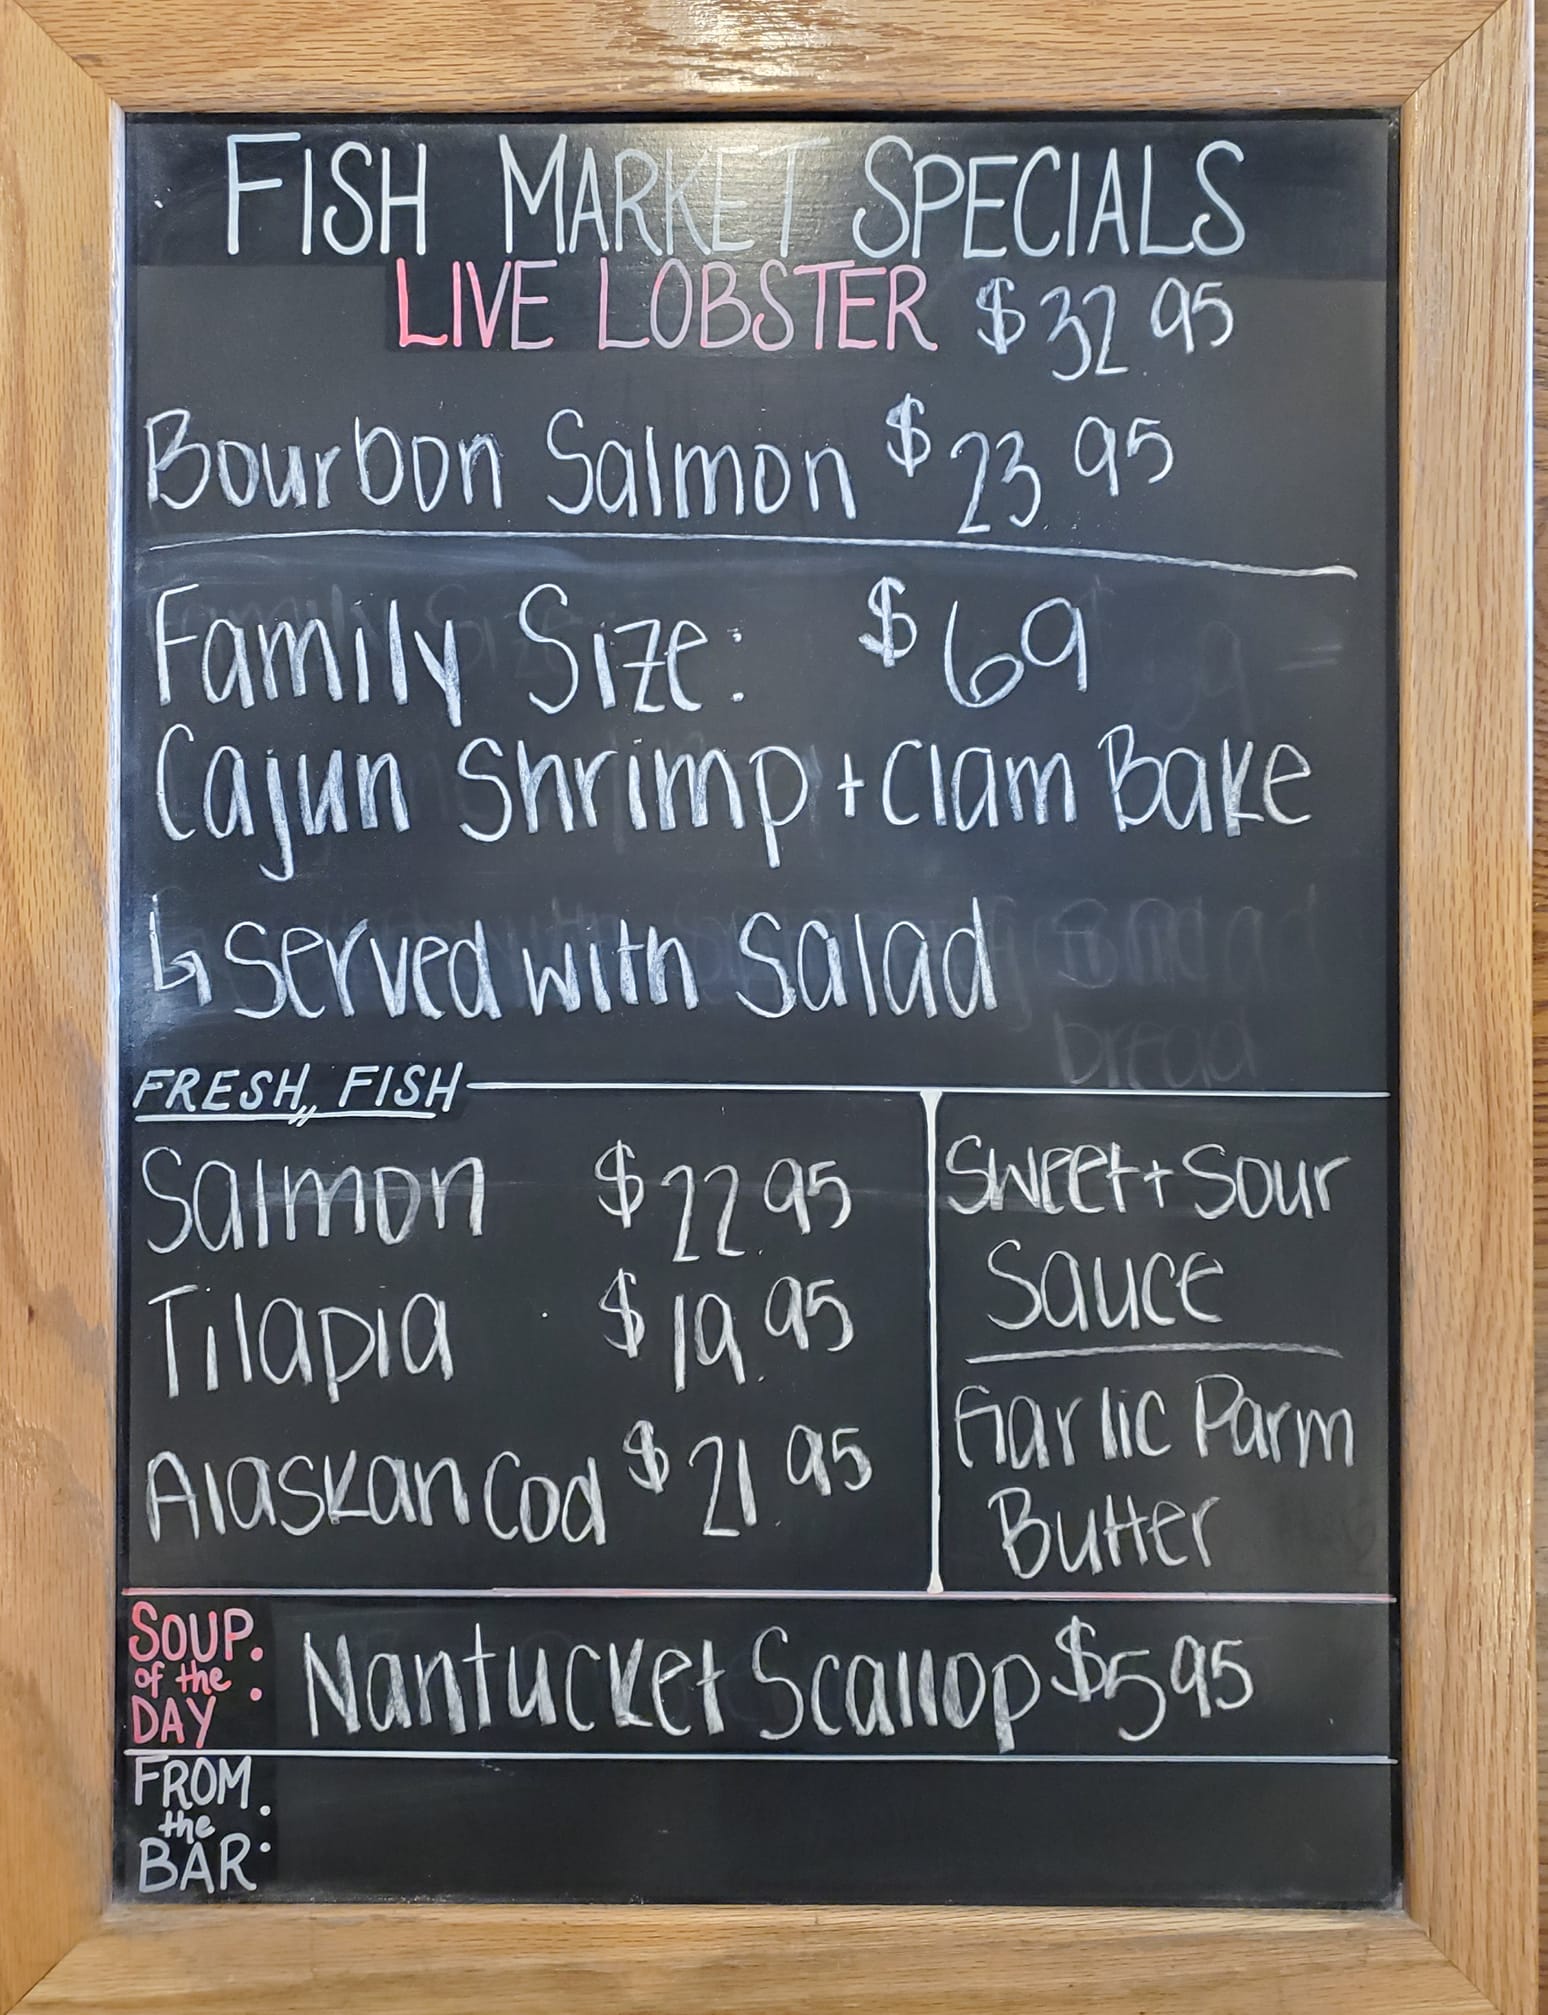 FISH MARKET SPECIALS
LIVE LOBSTER $32.95
Bourbon Salmon $23.95
Family Size: $69
Cajun Shrimp + Clam Bake
↳ Served with Salad
FRESH FISH
Salmon $22.95
Tilapia $19.95
Alaskan Cod $21.95
Sweet + Sour
Sauce
Garlic Parm
Butter
SOUP
of the
DAY: Nantucket Scallop $5.95
FROM
the
BAR: